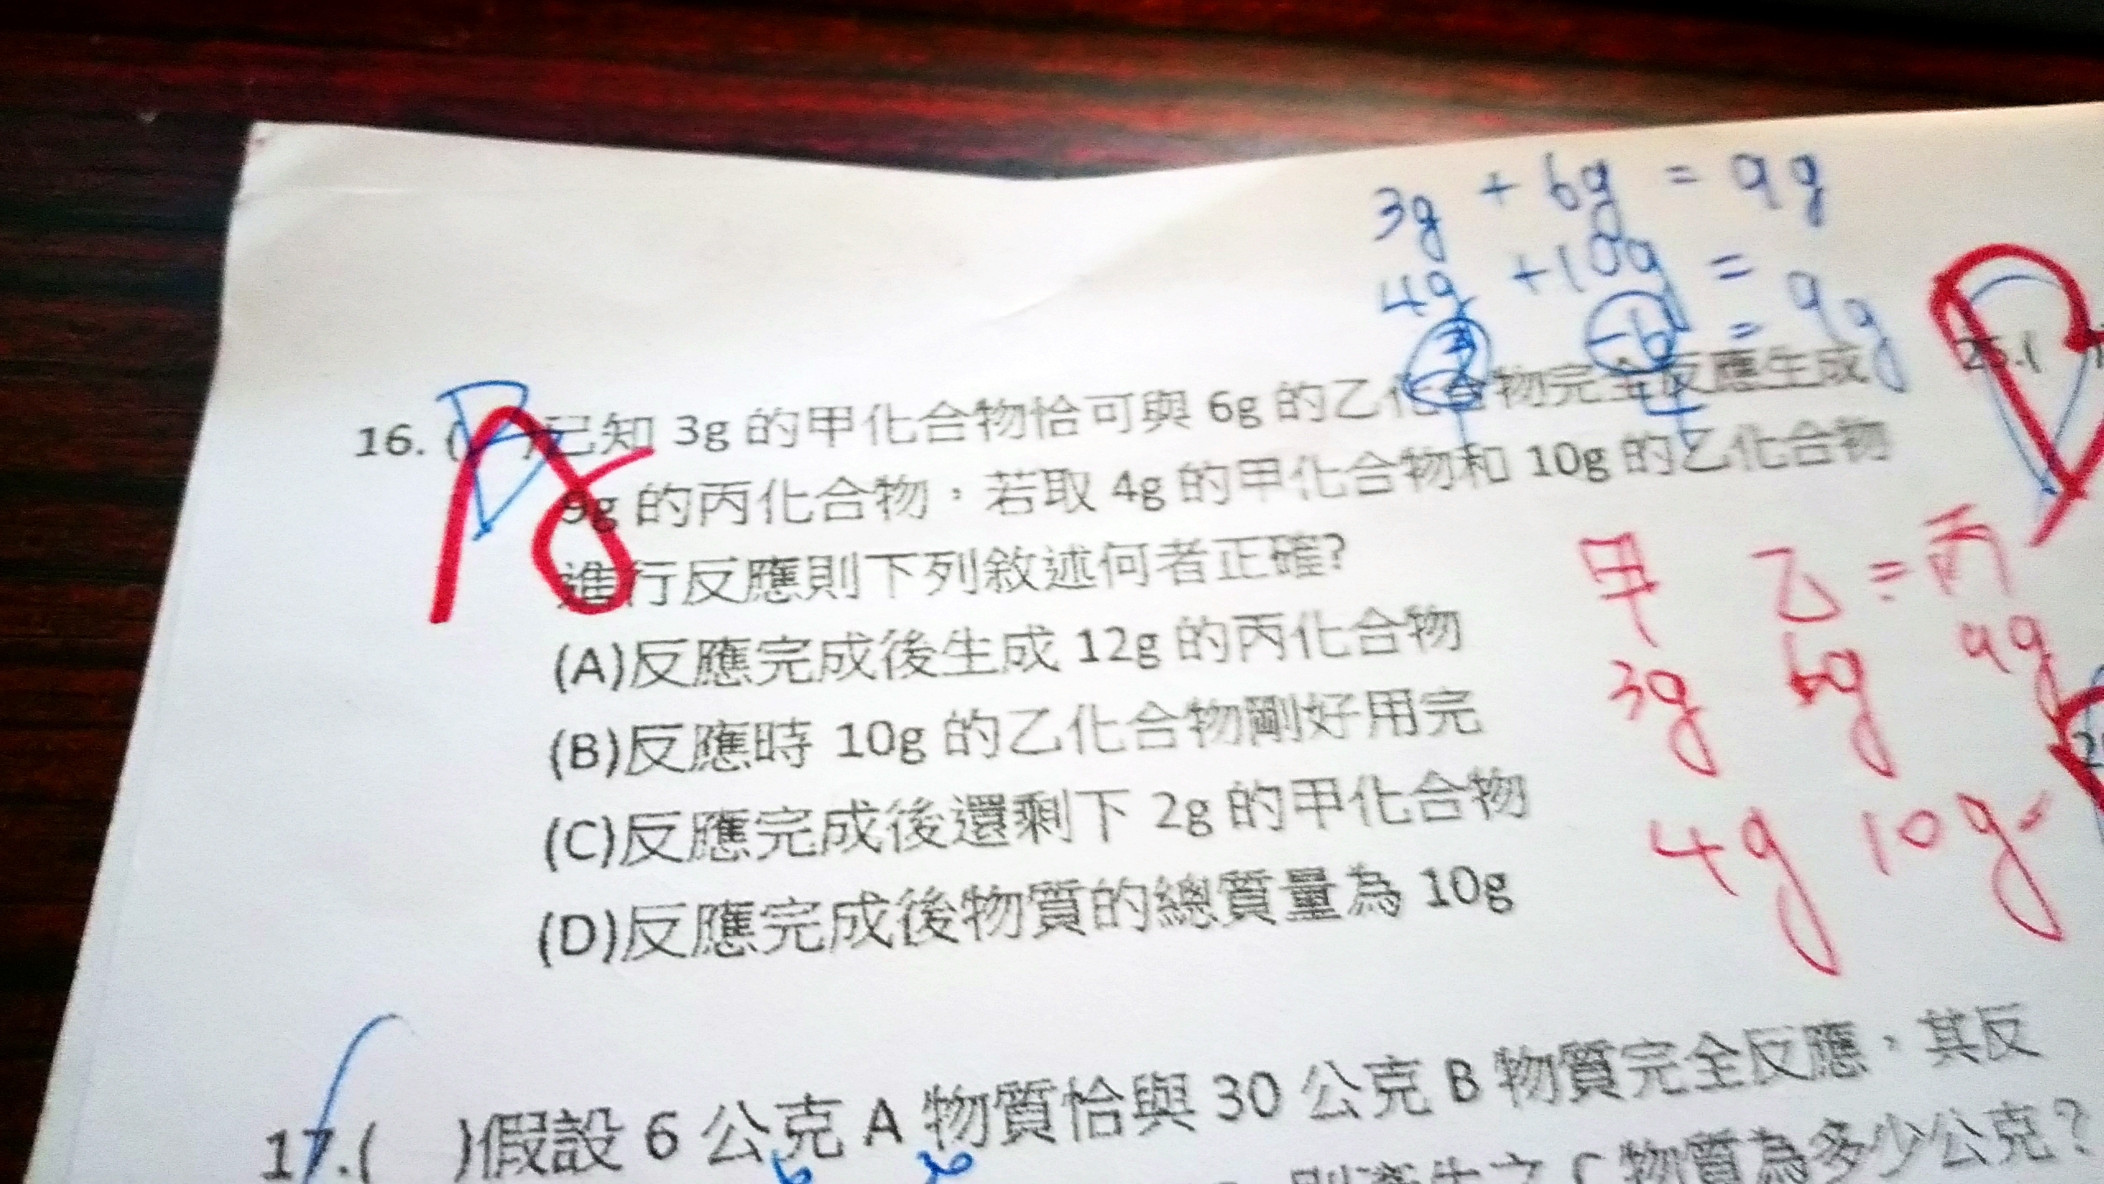 3g + 6g = 9g
4g + 10g = 9g
16. ( )已知 3g 的甲化合物恰可與 6g 的乙化合物完全反應生成
9g 的丙化合物，若取 4g 的甲化合物和 10g 的乙化合物
進行反應則下列敘述何者正確?
(A)反應完成後生成 12g 的丙化合物
(B)反應時 10g 的乙化合物剛好用完
(C)反應完成後還剩下 2g 的甲化合物
(D)反應完成後物質的總質量為 10g
甲 乙 = 丙
3g 6g 9g
4g 10g =
17.( )假設 6 公克 A 物質恰與 30 公克 B 物質完全反應，其反
C 物質為多少公克？